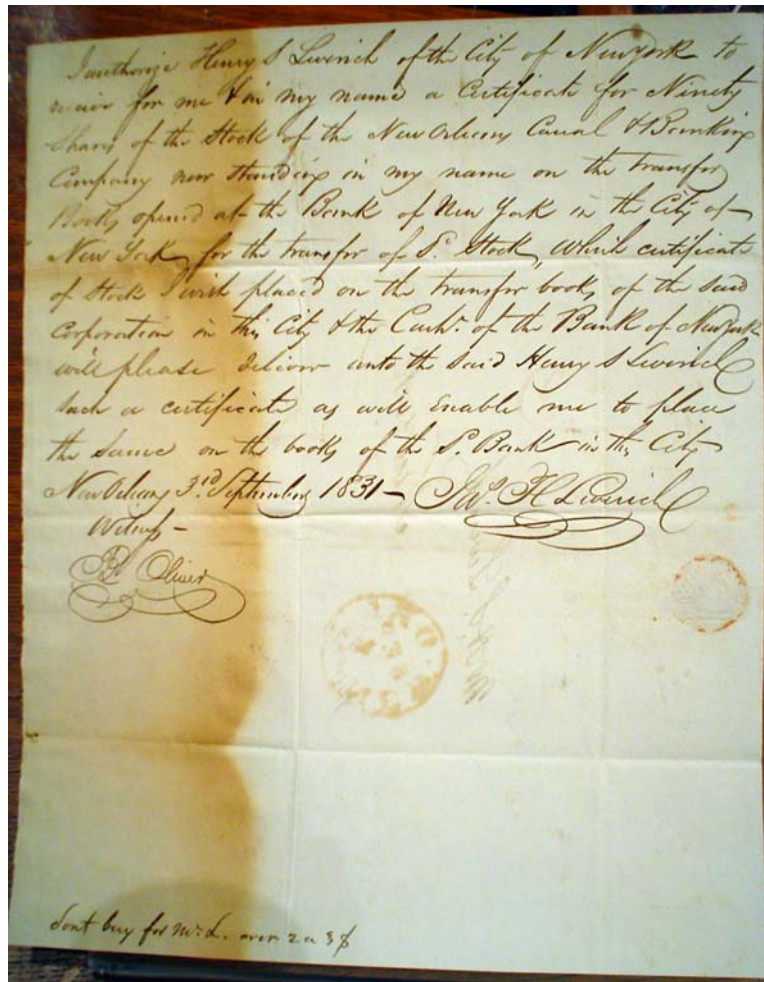 I authorize Henry S Leverich of the City of New york to
receive for me & in my name a Certificate for Ninety
Shares of the Stock of the New Orleans Canal & Banking
Company now standing in my name on the transfer
Books opened at the Bank of New York in the City of
New York, for the transfer of Sd. Stock, which certificate
of Stock I wish placed on the transfer books of the said
Corporation in this City & the Cashr. of the Bank of New York
will please deliver unto the said Henry S Leverich
such a certificate as will enable me to place
the same on the books of the Sd. Bank in this City
New Orleans 3rd. September 1831 – Jas. H Leverich
Witness –
Oliver
dont buy for Mr. L. over 2 a 3 %